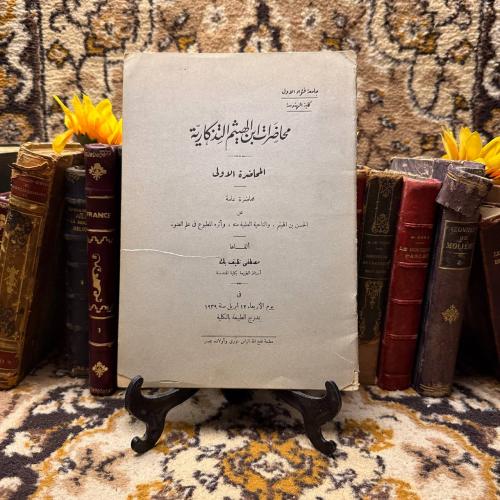 جامعة فؤاد الأول
كلية الهندسة
محاضرات ابن الهيثم التذكارية
المحاضرة الاولى
محاضرة عامة
عن
الحسن بن الهيثم ، والناحية العلمية منه ، وأثره المطبوع فى علم الضوء
ألقاها
مصطفى نظيف بك
أستاذ الطبيعة بكلية الهندسة
فى
يوم الأربعاء ١٢ أبريل سنة ١٩٣٩
بمدرج الطبيعة بالكلية
مطبعة فتح الله الياس نورى وأولاده بمصر
FRANCE
1
MOLIÈRE